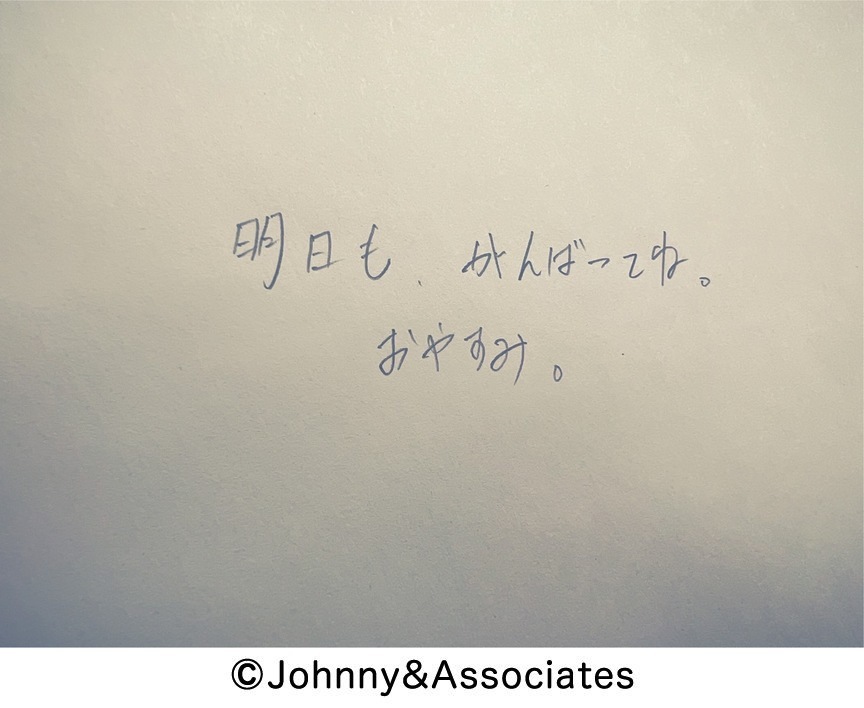 明日も、がんばってね。
おやすみ。
©Johnny&Associates